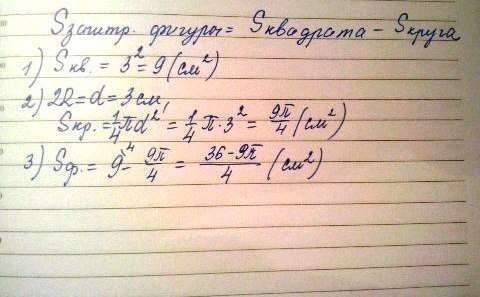 Sзаштр. фигуры = Sквадрата - Sкруга
1) Sкв. = 3² = 9 (см²)
2) 2R = d = 3см,
Sкр. = 1/4 πd² = 1/4 π·3² = 9π/4 (см²)
3) Sф. = 9⁴ - 9π/4 = (36-9π)/4 (см²)